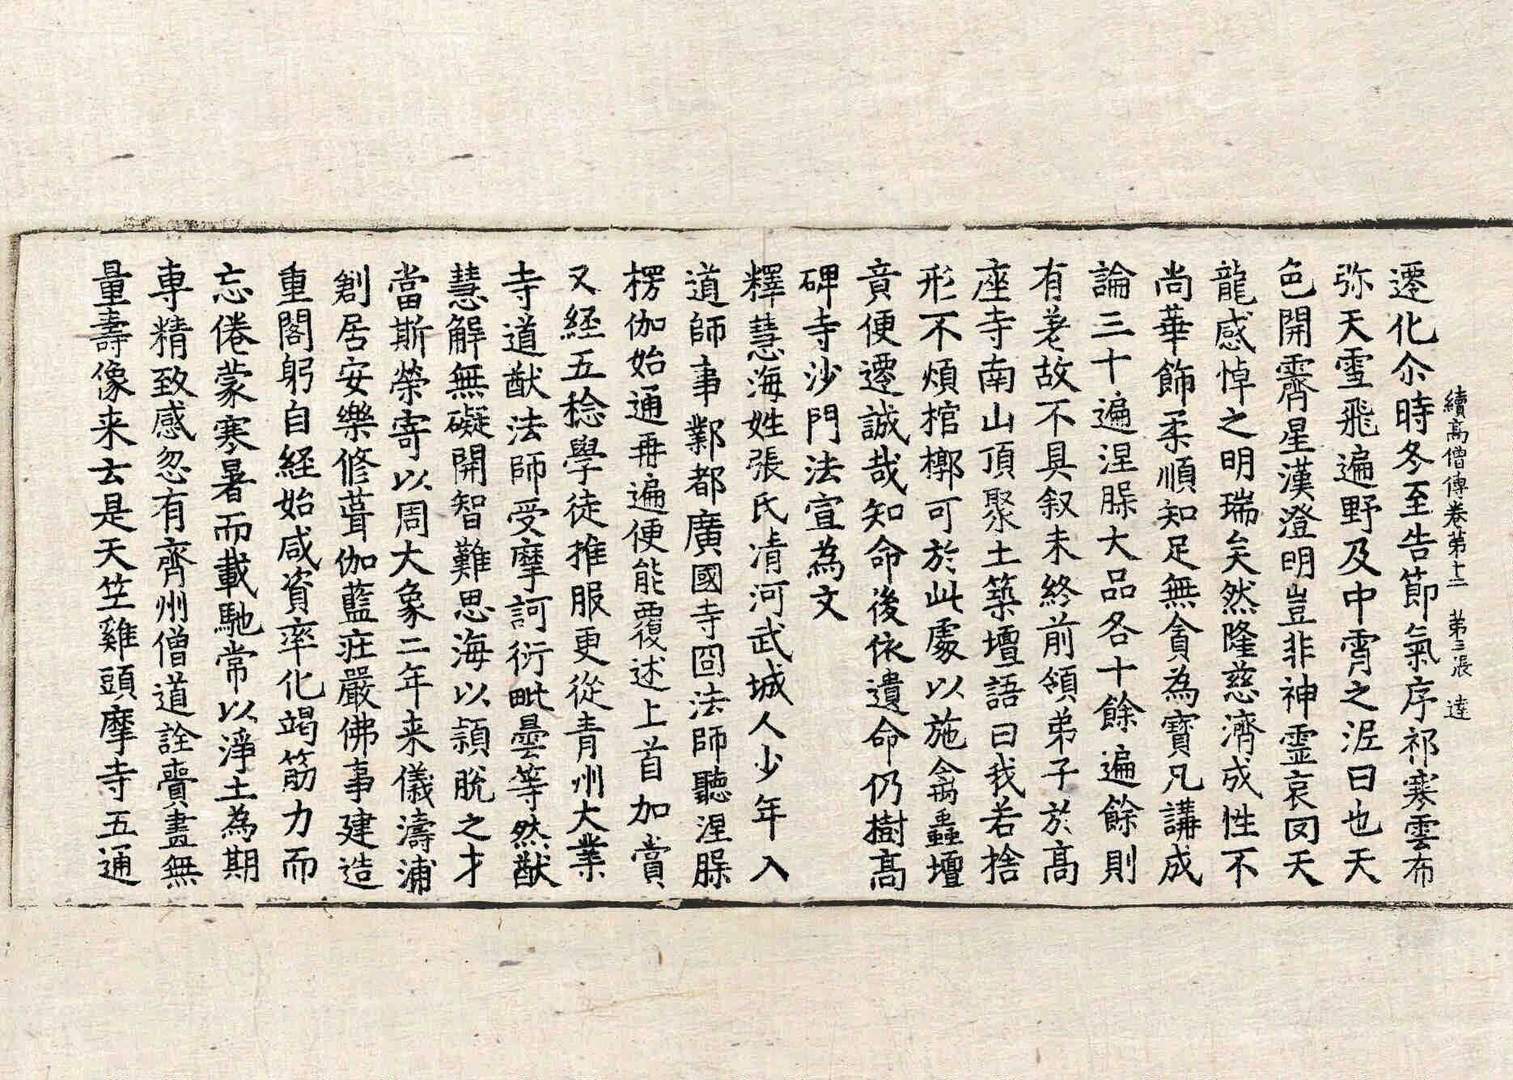 續高僧傳卷第十二　第三張　達
遷化尒時冬至告節氣序祁寒雲布
弥天雪飛遍野及中霄之泥曰也天
色開霽星漢澄明豈非神靈哀罔天
龍感悼之明瑞矣然隆慈濟成性不
尚華飾柔順知足無貪為寶凡講成
論三十遍涅脲大品各十餘遍餘則
有著故不具叙未終前領弟子於高
座寺南山頂聚土築壇語曰我若捨
形不煩棺槨可於此處以施禽蟲壇
竟便遷誠哉知命後依遺命仍樹高
碑寺沙門法宣為文
釋慧海姓張氏清河武城人少年入
道師事鄴都廣國寺冏法師聽涅脲
楞伽始通再遍便能覆述上首加賞
又經五稔學徒推服更從青州大業
寺道猷法師受摩訶衍毗曇等然猷
慧解無礙開智難思海以頴脫之才
當斯榮寄以周大象二年来儀濤浦
創居安樂修葺伽藍疘嚴佛事建造
重閣躬自經始咸資率化竭筋力而
忘倦蒙寒暑而載馳常以淨土為期
專精致感忽有齊州僧道詮賷畫無
量壽像来云是天竺雞頭摩寺五通